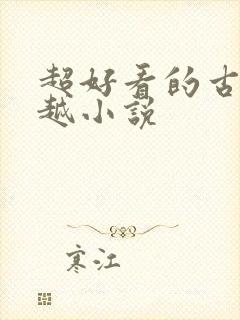 超好看的古
越小说
寒江